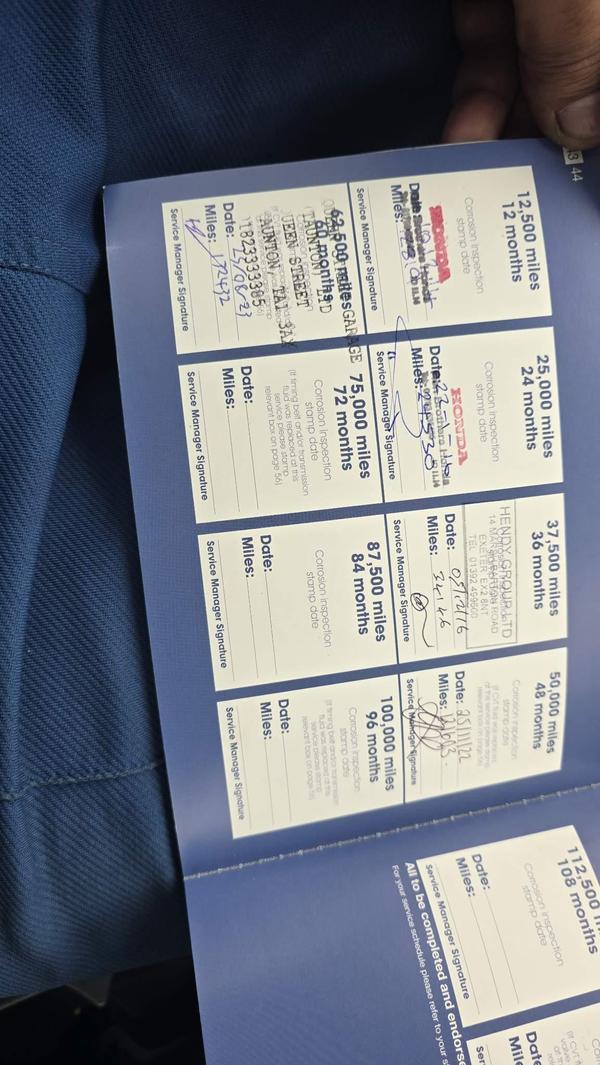 44
12,500 miles
12 months
Corrosion inspection
stamp date
HONDA
Miles:
Service Manager Signature
25,000 miles
24 months
Corrosion inspection
stamp date
HONDA
Date:
Miles:
Service Manager Signature
37,500 miles
36 months
HENDY GROUP LTD
EXETER EX2 8NT
Date: 05/12/16
Miles:
Service Manager Signature
50,000 miles
48 months
Corrosion inspection
stamp date
Date: 25/11/22
Miles:
Service Manager Signature
62,500 miles
60 months
GARAGE
(TAUNTON) LTD
QUEEN STREET
TAUNTON TA1 3AX
01823333385
Date: 29/08/23
Miles: 172472
Service Manager Signature
75,000 miles
72 months
Corrosion inspection
stamp date
(If timing belt and/or transmission
fluid was replaced at this
service please stamp
relevant box on page 56)
Date:
Miles:
Service Manager Signature
87,500 miles
84 months
Corrosion inspection
stamp date
Date:
Miles:
Service Manager Signature
100,000 miles
96 months
Corrosion inspection
stamp date
(If timing belt and/or transmission
fluid was replaced at this
service please stamp
relevant box on page 56)
Date:
Miles:
Service Manager Signature
112,500
108 months
Corrosion inspection
stamp date
Date:
Miles:
Service Manager Signature
All to be completed and
For your service schedule please refer to your